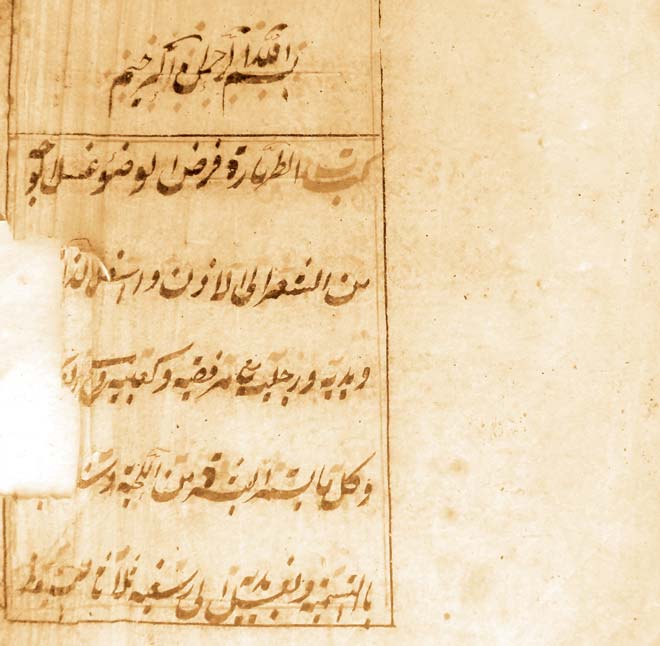 بسم الله الرحمن الرحيم
كتاب الطهارة فرض الوضوء غسل الوجه
من الشعر الى الاذن واسفل الذقن
ويديه ورجليه مع مرفقيه وكعبيه
وكل ما يستر البشرة من اللحية
بالتسمية وبغسل يديه الى رسغيه ثلاثا